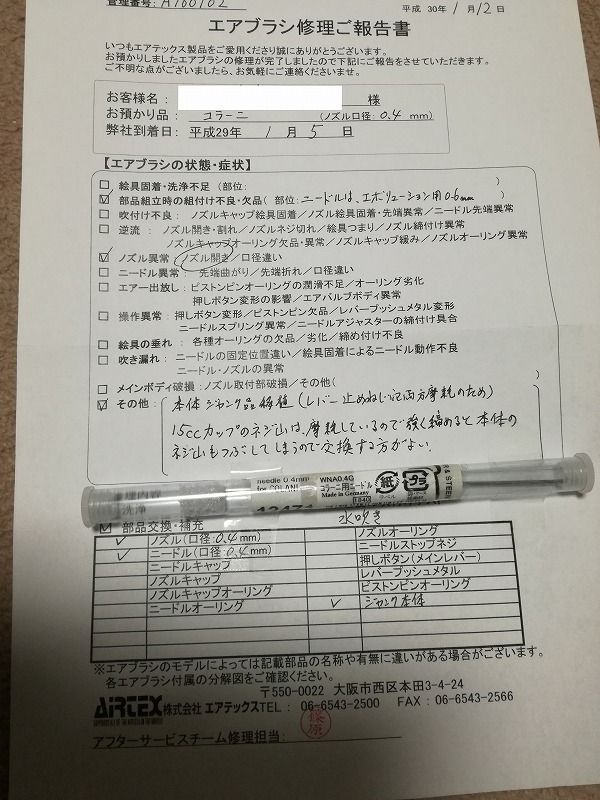 管理番号: A160102
平成 30年 1月12日
エアブラシ修理ご報告書
いつもエアテックス製品をご愛用くださり誠にありがとうございます。
お預かりしましたエアブラシの修理が完了しましたので下記にご報告をさせていただきます。
ご不明な点がございましたら、お気軽にご連絡くださいませ。
お客様名: 様
お預かり品: コラーニ (ノズル口径:0.4 mm)
弊社到着日:平成29年 1月5日
【エアブラシの状態・症状】
□ 絵具固着・洗浄不足 (部位: )
☑ 部品組立時の組付け不良・欠品 (部位:ニードルは、エボリューション用0.6mm )
□ 吹付け不良: ノズルキャップ絵具固着/ノズル絵具固着・先端異常/ニードル先端異常
□ 逆流: ノズル開き・割れ/ノズルネジ切れ/絵具つまり/ノズル締付け異常
ノズルキャップオーリング欠品・異常/ノズルキャップ緩み/ノズルオーリング異常
☑ ノズル異常:ノズル開き/口径違い
□ ニードル異常: 先端曲がり/先端折れ/口径違い
□ エアー出放し: ピストンピンオーリングの潤滑不足/オーリング劣化
押しボタン変形の影響/エアバルブボディ異常
□ 操作異常:押しボタン変形/ピストンピン欠品/レバープッシュメタル変形
ニードルスプリング異常/ニードルアジャスターの締付け具合
□ 絵具の垂れ: 各種オーリングの欠品/劣化/締め付け不良
□ 吹き漏れ: ニードルの固定位置違い/絵具固着によるニードル動作不良
ニードル・ノズルの異常
□ メインボディ破損:ノズル取付部破損/その他( )
☑ その他: 本体 ジャンク品修理 (レバー止めねじ 両方摩耗のため)
1.5ccカップのネジ山は、摩耗しているので強く締めると本体の
ネジ山もつぶしてしまうので交換する方がよい。
needle 0.4mm
for COLANI
WNA0.4G
コラーニ用ニードル
Made in Germany
紙
プラ
洗浄
水吹き
☑ 部品交換・補充
✓ ノズル(口径:0.4mm) ノズルオーリング
✓ ニードル(口径:0.4mm) ニードルストップネジ
ニードルキャップ 押しボタン(メインレバー)
ノズルキャップ レバープッシュメタル
ノズルキャップオーリング ピストンピンオーリング
ニードルオーリング ✓ ジャンク本体
※エアブラシのモデルによっては記載部品の名称や有無に違いがある場合がございます。
各エアブラシ付属の分解図をご確認ください。
〒550-0022 大阪市西区本田3-4-24
AIRTEX 株式会社 エアテックス TEL: 06-6543-2500 FAX:06-6543-2566
篠原
アフターサービスチーム修理担当: